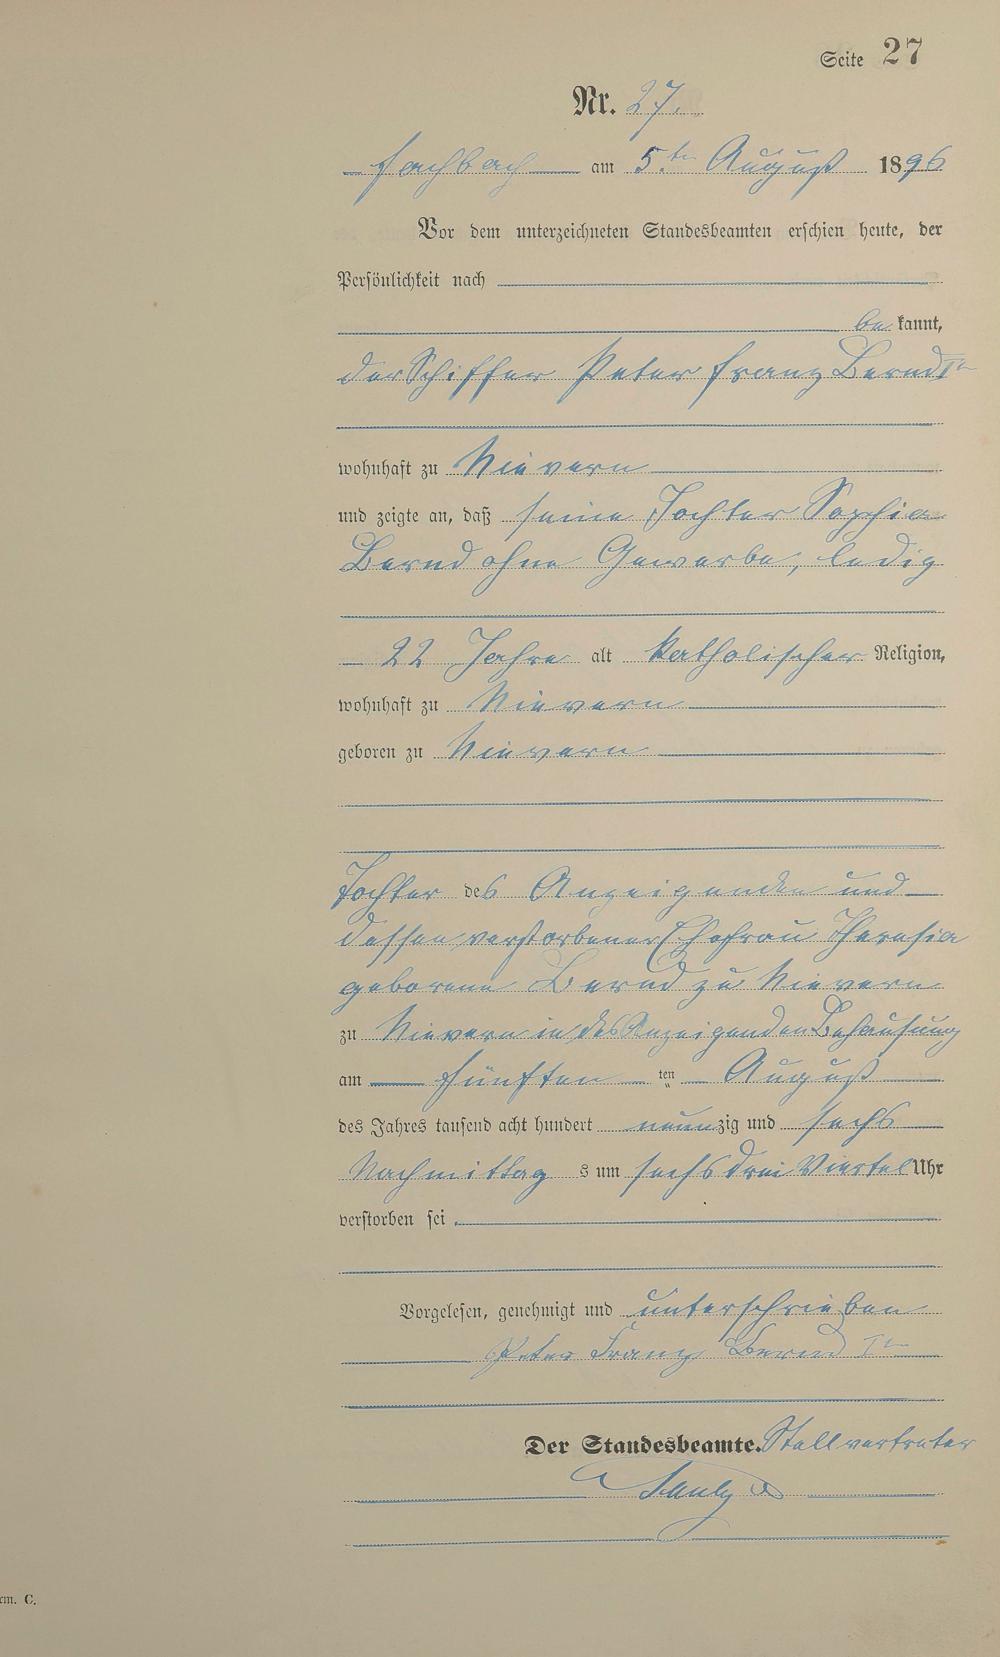 Seite 27
Nr. 27.
Fachbach am 5ten August 1896
Vor dem unterzeichneten Standesbeamten erschien heute, der
Persönlichkeit nach
be kannt,
der Schiffer Peter Franz Bernd Ir
wohnhaft zu Nievern
und zeigte an, daß seine Tochter Sophia
Bernd ohne Gewerbe, ledig
22 Jahre alt katholischer Religion,
wohnhaft zu Nievern
geboren zu Nievern
Tochter des Anzeigenden und
dessen verstorbener Ehefrau Theresia
geborene Bernd zu Nievern
zu Nievern in des Anzeigenden Behausung
am fünften ten August
des Jahres tausend acht hundert neunzig und sechs
Nachmittag s um sechs drei Viertel Uhr
verstorben sei.
Vorgelesen, genehmigt und unterschrieben
Peter Franz Bernd Ir
Der Standesbeamte. Stellvertreter
rm. C.